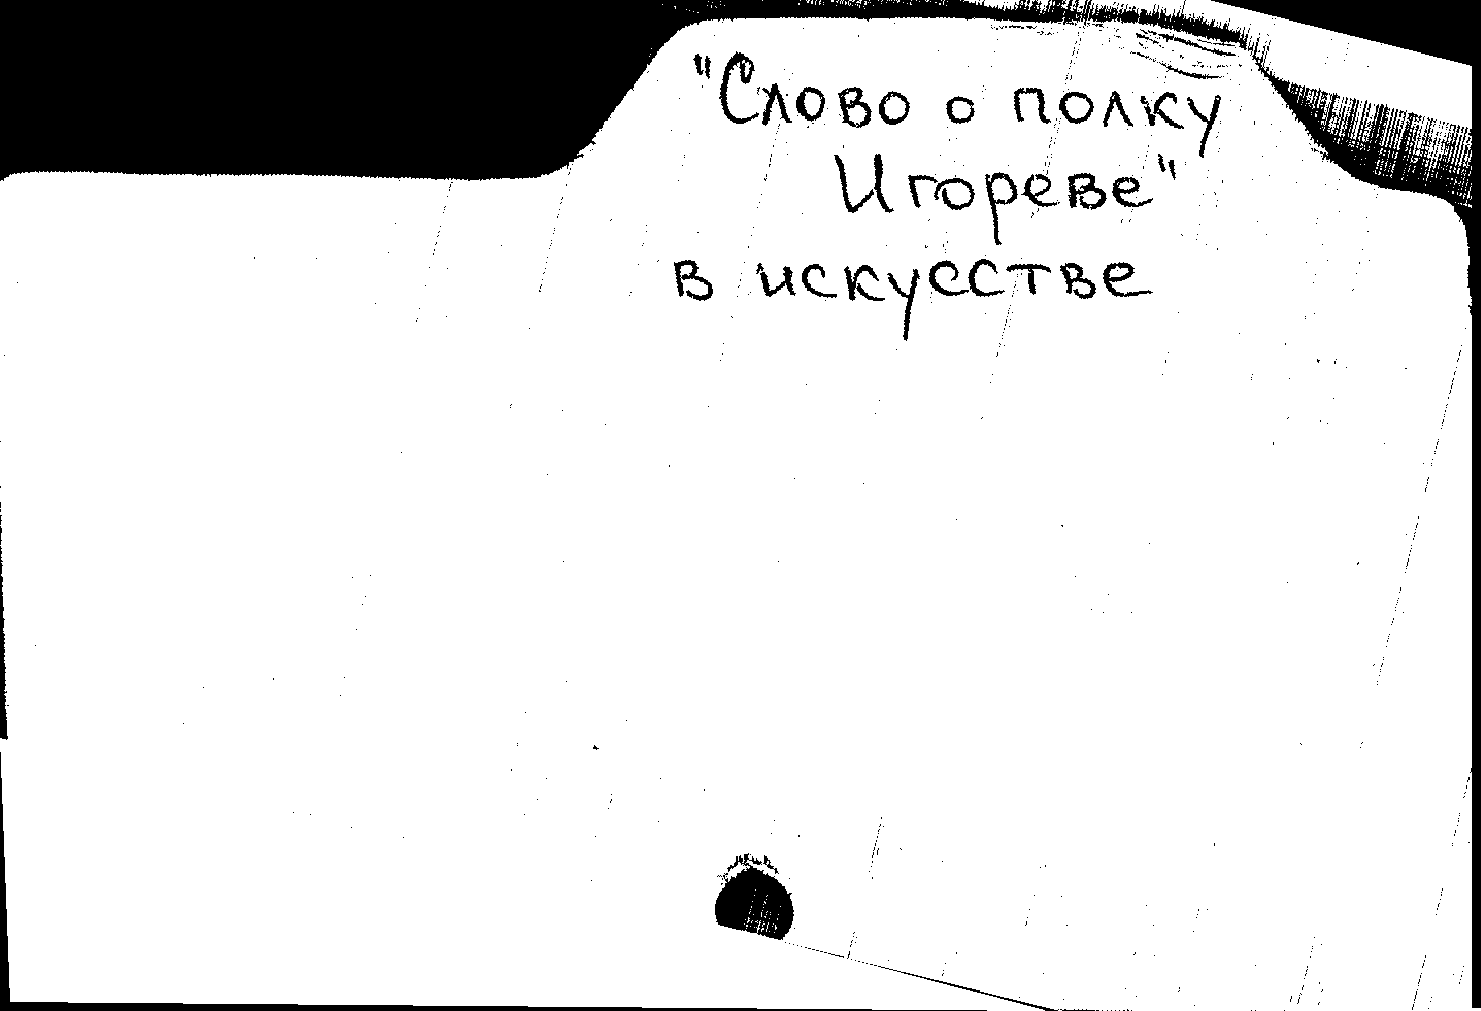 "Слово о полку
Игореве"
в искусстве